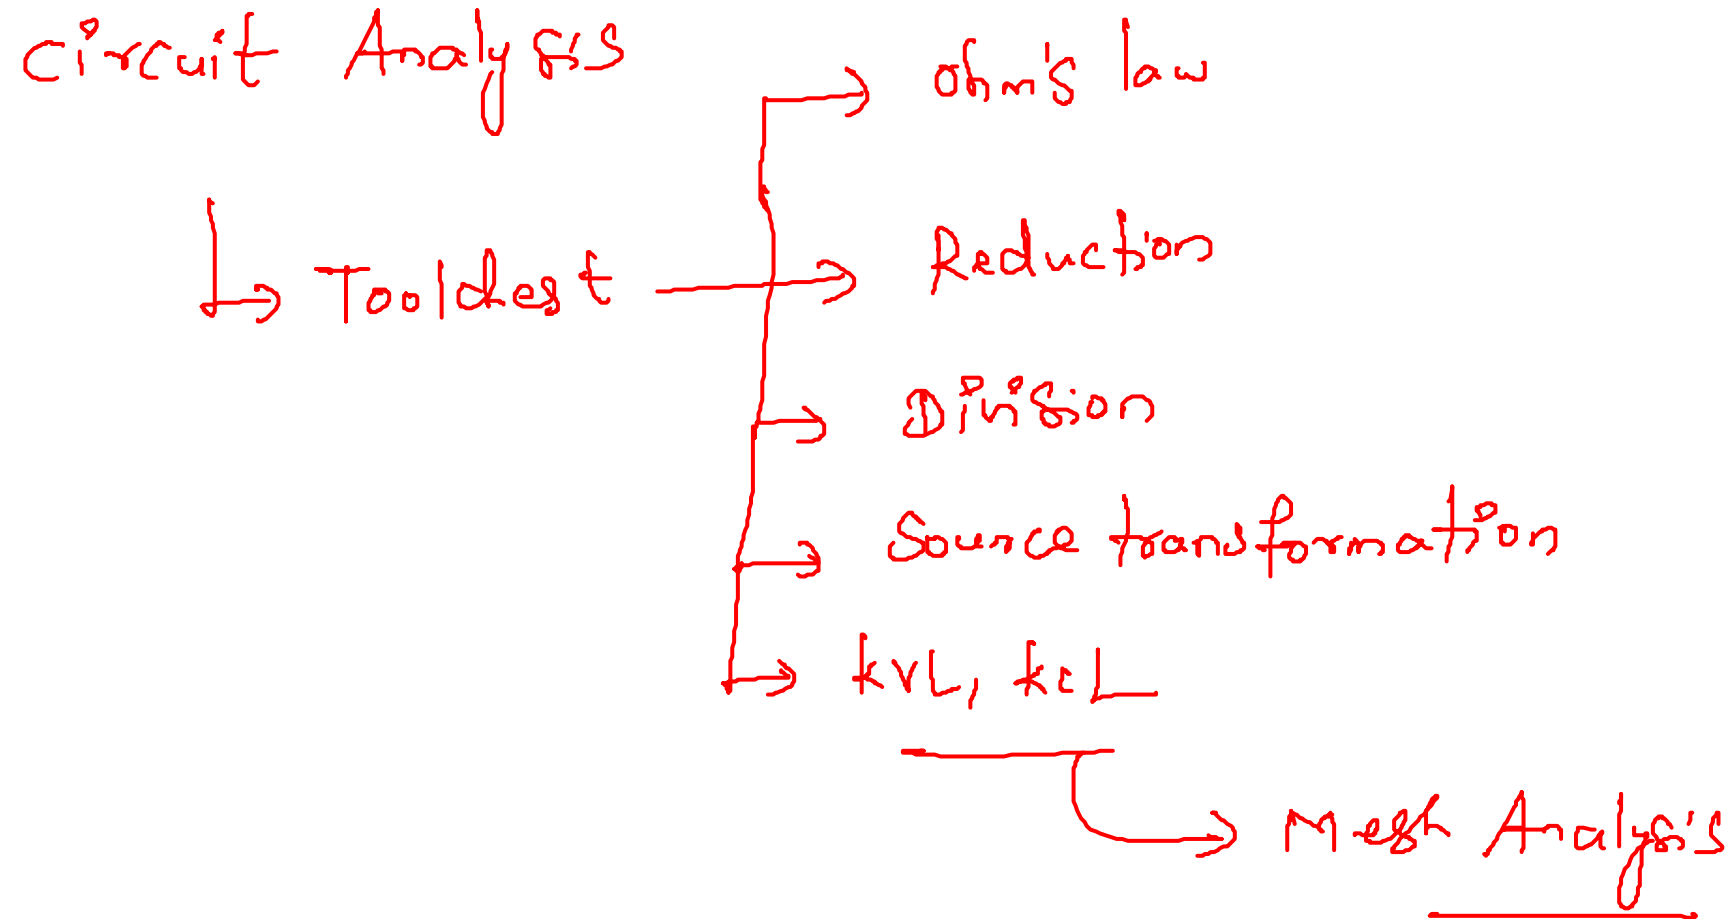 Circuit Analysis
Ohm's law
Toolchest
Reduction
Division
Source transformation
KVL, KCL
Mesh Analysis